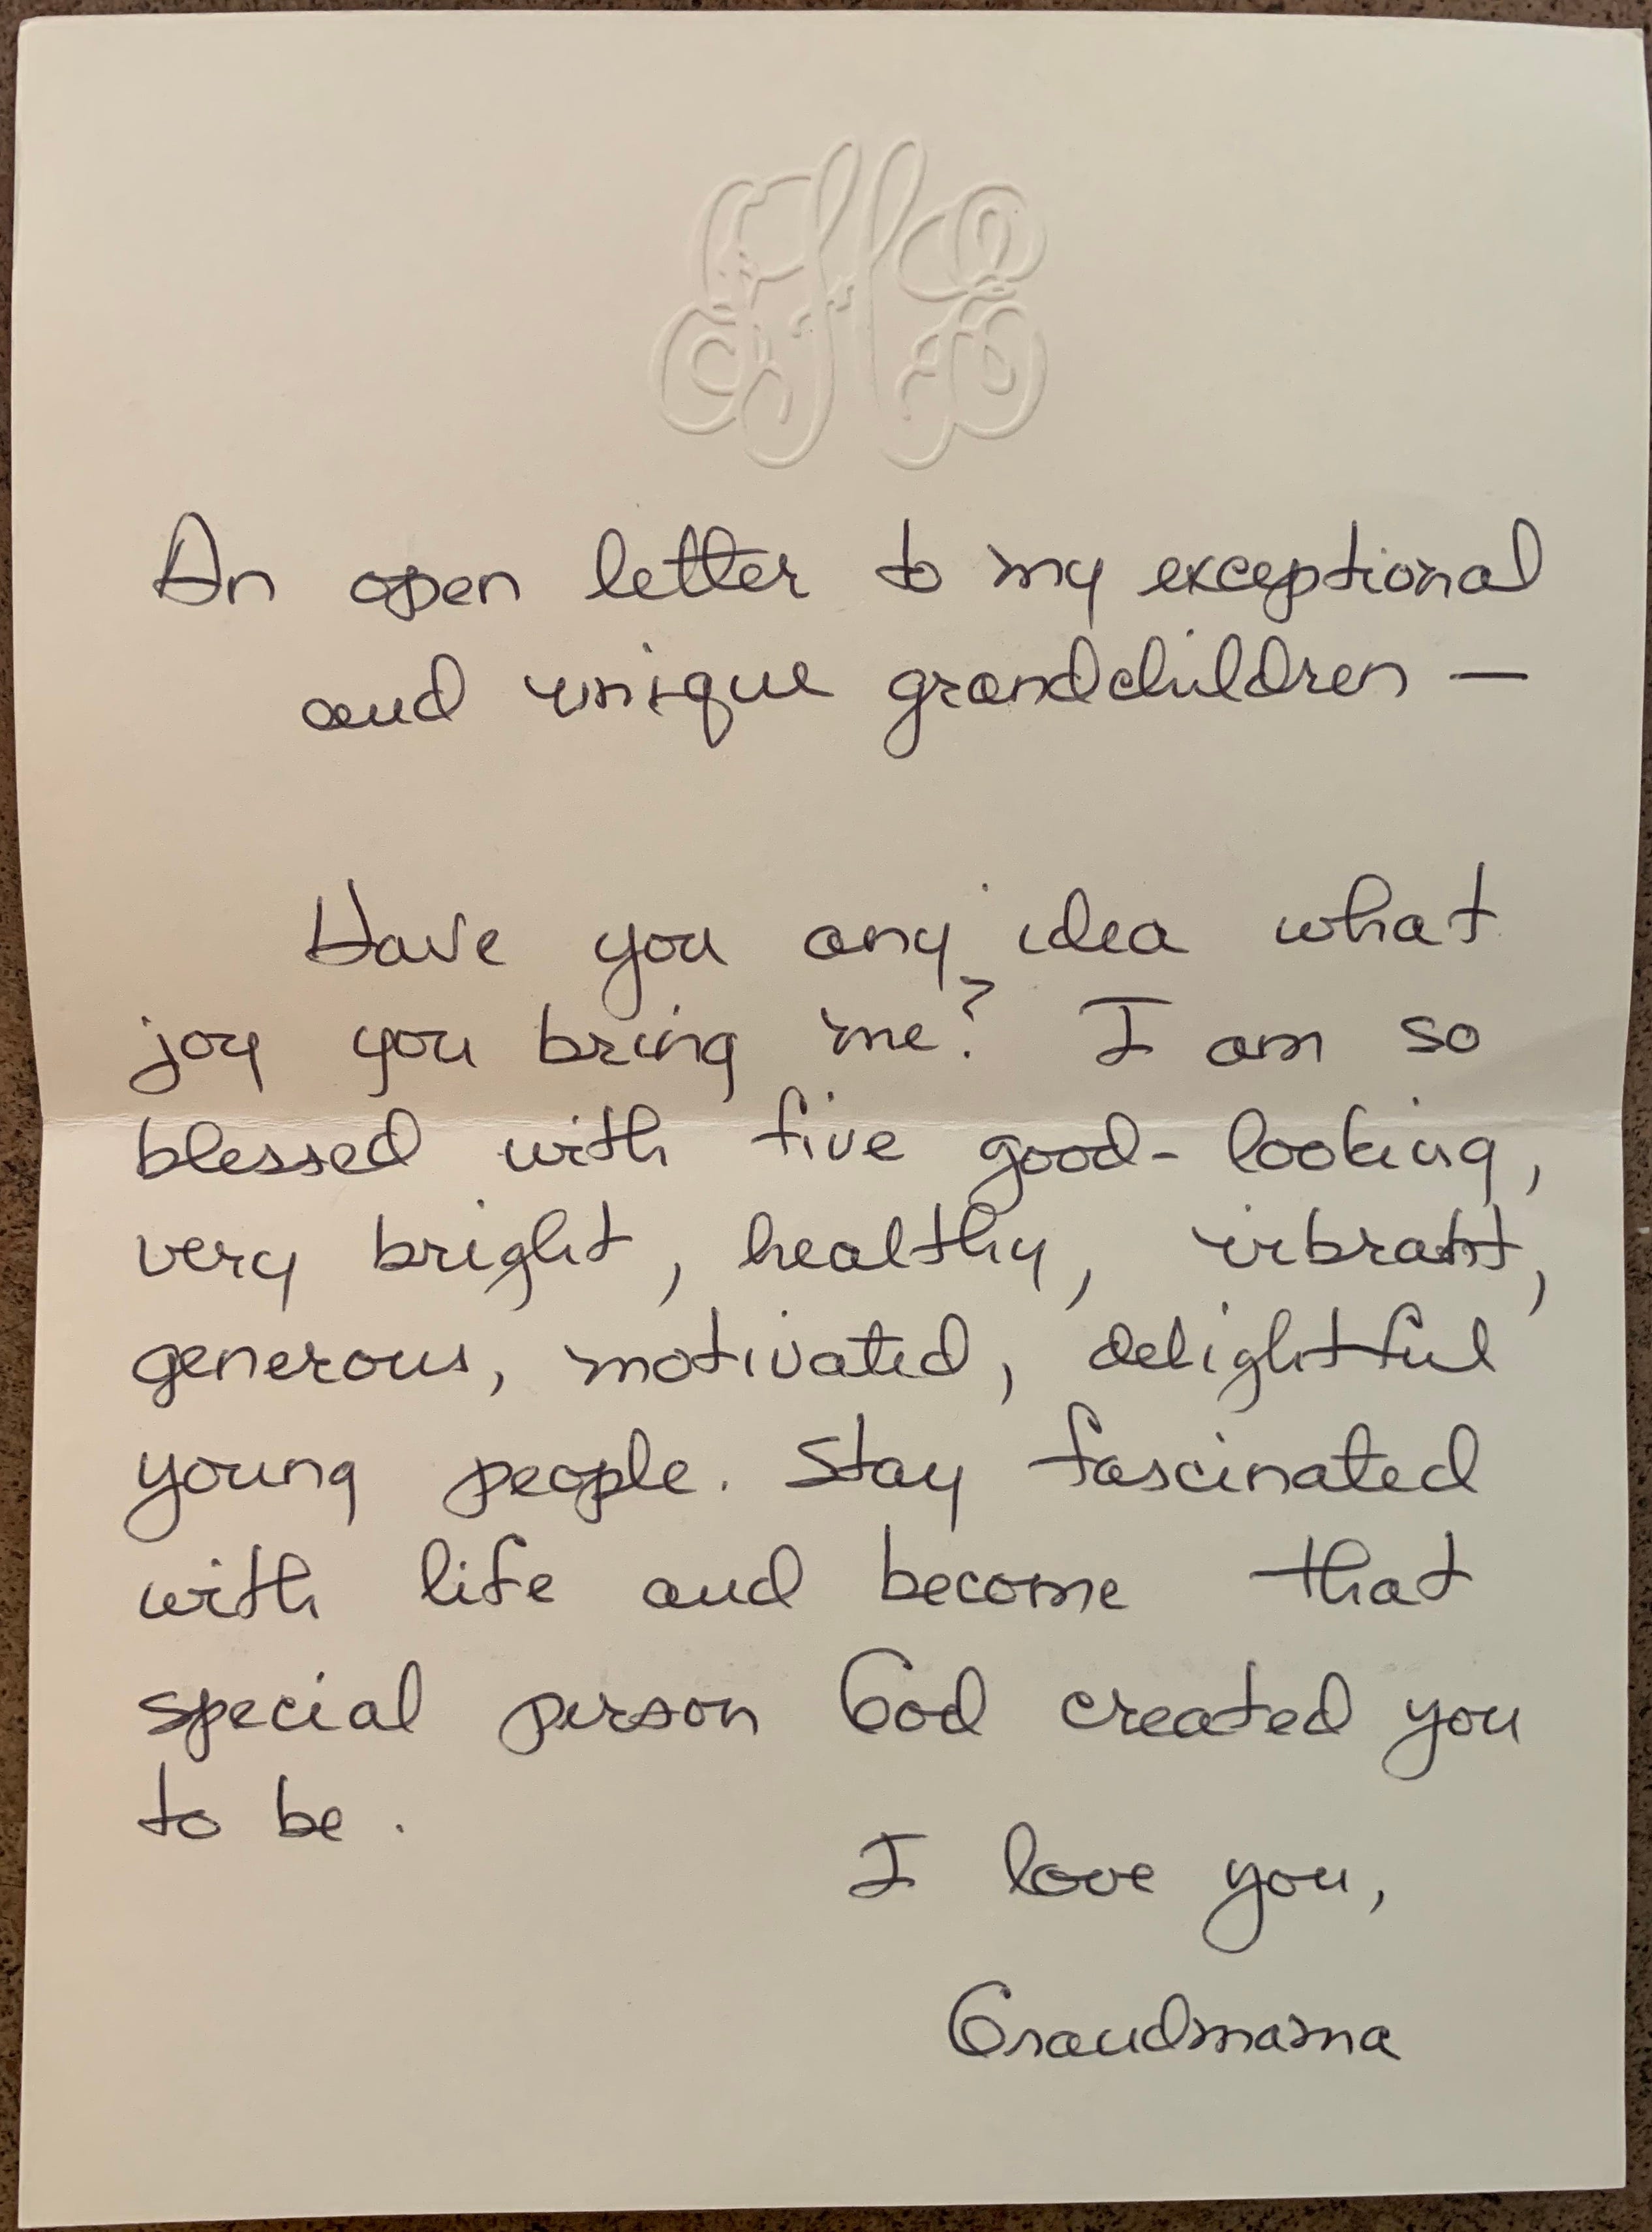 An open letter to my exceptional
and unique grandchildren —
Have you any idea what
joy you bring me? I am so
blessed with five good-looking,
very bright, healthy, vibrant,
generous, motivated, delightful
young people. Stay fascinated
with life and become that
special person God created you
to be.
I love you,
Grandmama